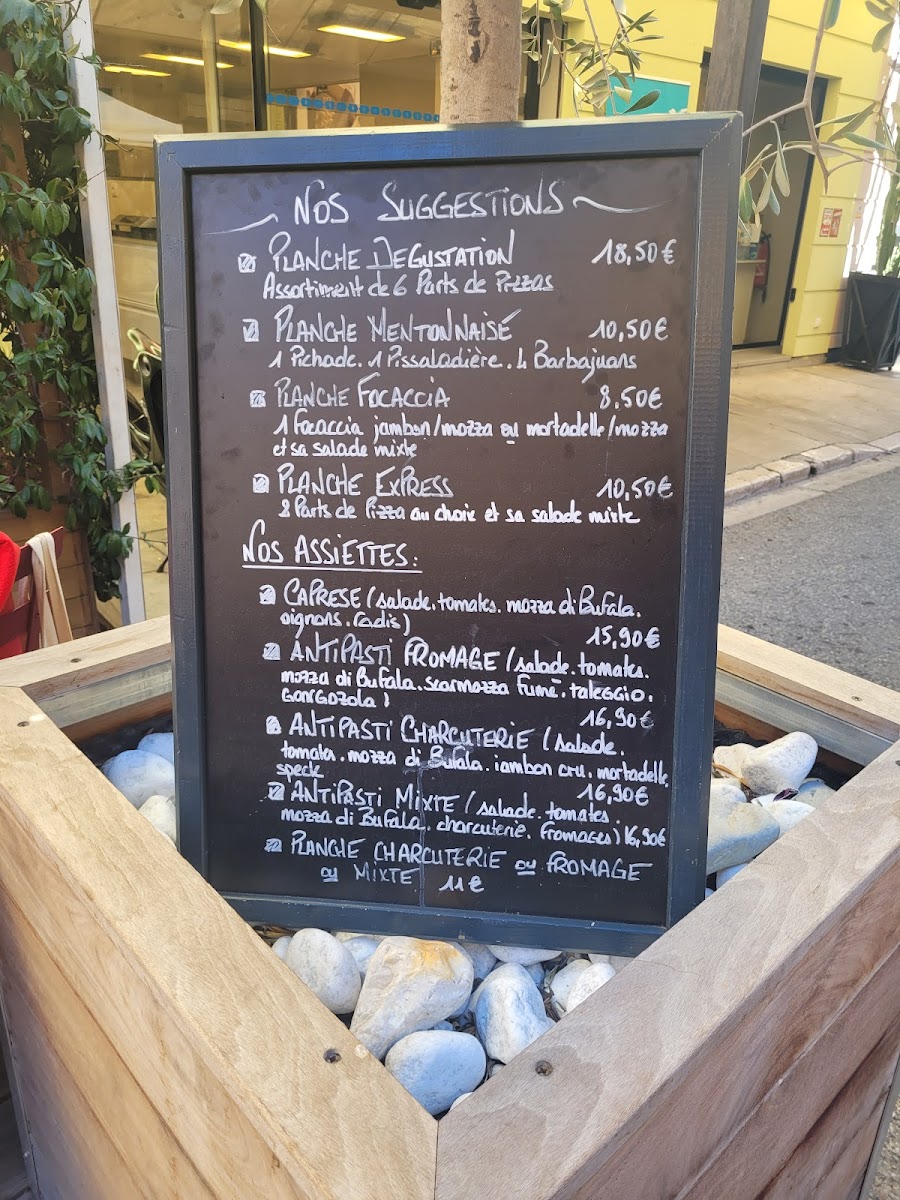 Nos Suggestions
Planche Degustation 18,50€
Assortiment de 6 Parts de Pizzas
Planche Mentonnaise 10,50€
1 Pichade. 1 Pissaladière. 4 Barbajuans
Planche Focaccia 8,50€
1 Focaccia jambon/mozza ou mortadelle/mozza
et sa salade mixte
Planche Express 10,50€
2 Parts de Pizza au choix et sa salade mixte
Nos Assiettes:
Caprese (salade. tomates. mozza di Bufala.
oignons. radis)
15,90€
Antipasti Fromage (salade. tomates.
mozza di Bufala. scarmozza fumé. taleggio.
Gorgozola)
16,90€
Antipasti Charcuterie (salade.
tomates. mozza di Bufala. jambon cru. mortadelle.
speck
16,90€
Antipasti Mixte (salade. tomates.
mozza di Bufala. charcuterie. fromages) 16,90€
Planche Charcuterie ou Fromage
ou Mixte 11€